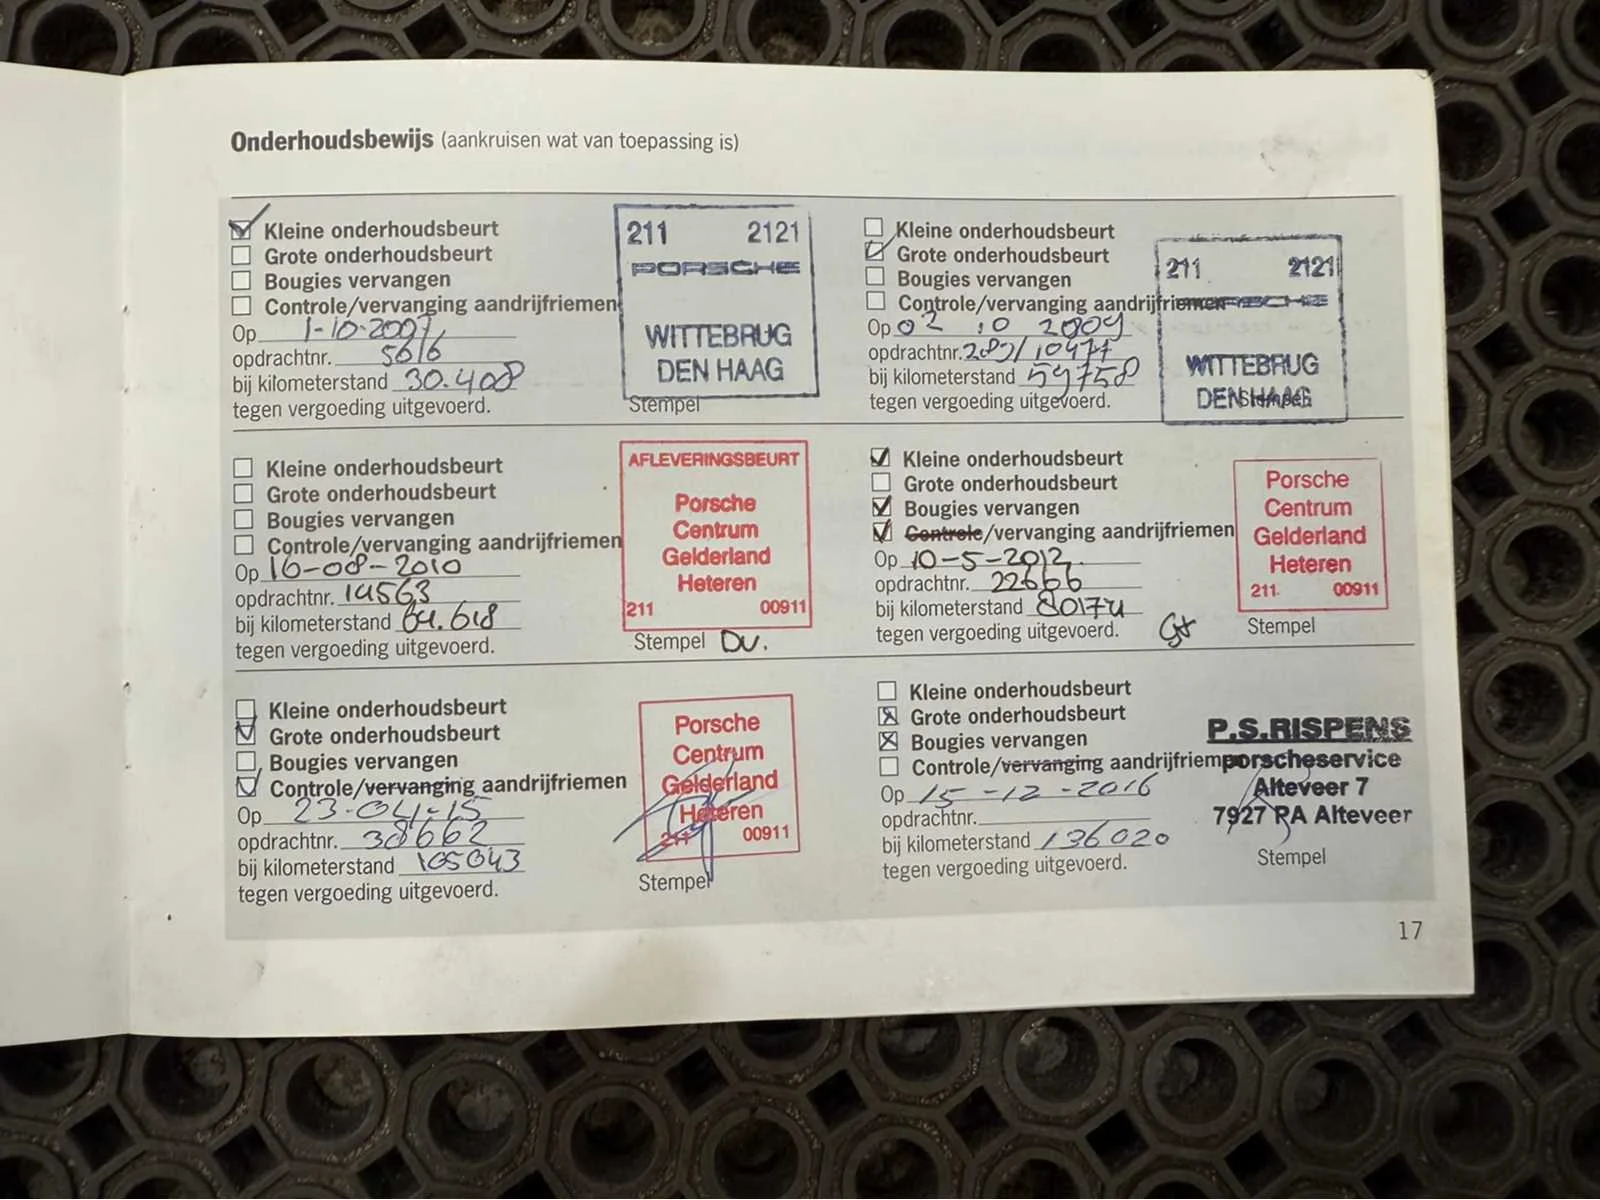 Onderhoudsbewijs (aankruisen wat van toepassing is)
Kleine onderhoudsbeurt
Grote onderhoudsbeurt
Bougies vervangen
Controle/vervanging aandrijfriemen
Op 1-10-2007
opdrachtnr. 5616
bij kilometerstand 30.408
tegen vergoeding uitgevoerd.
211 2121
PORSCHE
WITTEBRUG
DEN HAAG
Stempel
Kleine onderhoudsbeurt
Grote onderhoudsbeurt
Bougies vervangen
Controle/vervanging aandrijfriemen
Op 02 10 2009
opdrachtnr.
bij kilometerstand 59758
tegen vergoeding uitgevoerd.
211 2121
PORSCHE
WITTEBRUG
DEN HAAG
Stempel
Kleine onderhoudsbeurt
Grote onderhoudsbeurt
Bougies vervangen
Controle/vervanging aandrijfriemen
Op 16-08-2010
opdrachtnr. 14563
bij kilometerstand 64.618
tegen vergoeding uitgevoerd.
AFLEVERINGSBEURT
Porsche
Centrum
Gelderland
Heteren
211 00911
Stempel DV.
Kleine onderhoudsbeurt
Grote onderhoudsbeurt
Bougies vervangen
Controle/vervanging aandrijfriemen
Op 10-5-2012
opdrachtnr. 22666
bij kilometerstand 80174
tegen vergoeding uitgevoerd.
Porsche
Centrum
Gelderland
Heteren
211 00911
Stempel
Kleine onderhoudsbeurt
Grote onderhoudsbeurt
Bougies vervangen
Controle/vervanging aandrijfriemen
Op 23-04-15
opdrachtnr. 38662
bij kilometerstand 105043
tegen vergoeding uitgevoerd.
Porsche
Centrum
Gelderland
Heteren
211 00911
Stempel
Kleine onderhoudsbeurt
Grote onderhoudsbeurt
Bougies vervangen
Controle/vervanging aandrijfriem
Op 15-12-2016
opdrachtnr.
bij kilometerstand 136020
tegen vergoeding uitgevoerd.
P.S.RISPENS
porscheservice
Alteveer 7
7927 RA Alteveer
Stempel
17